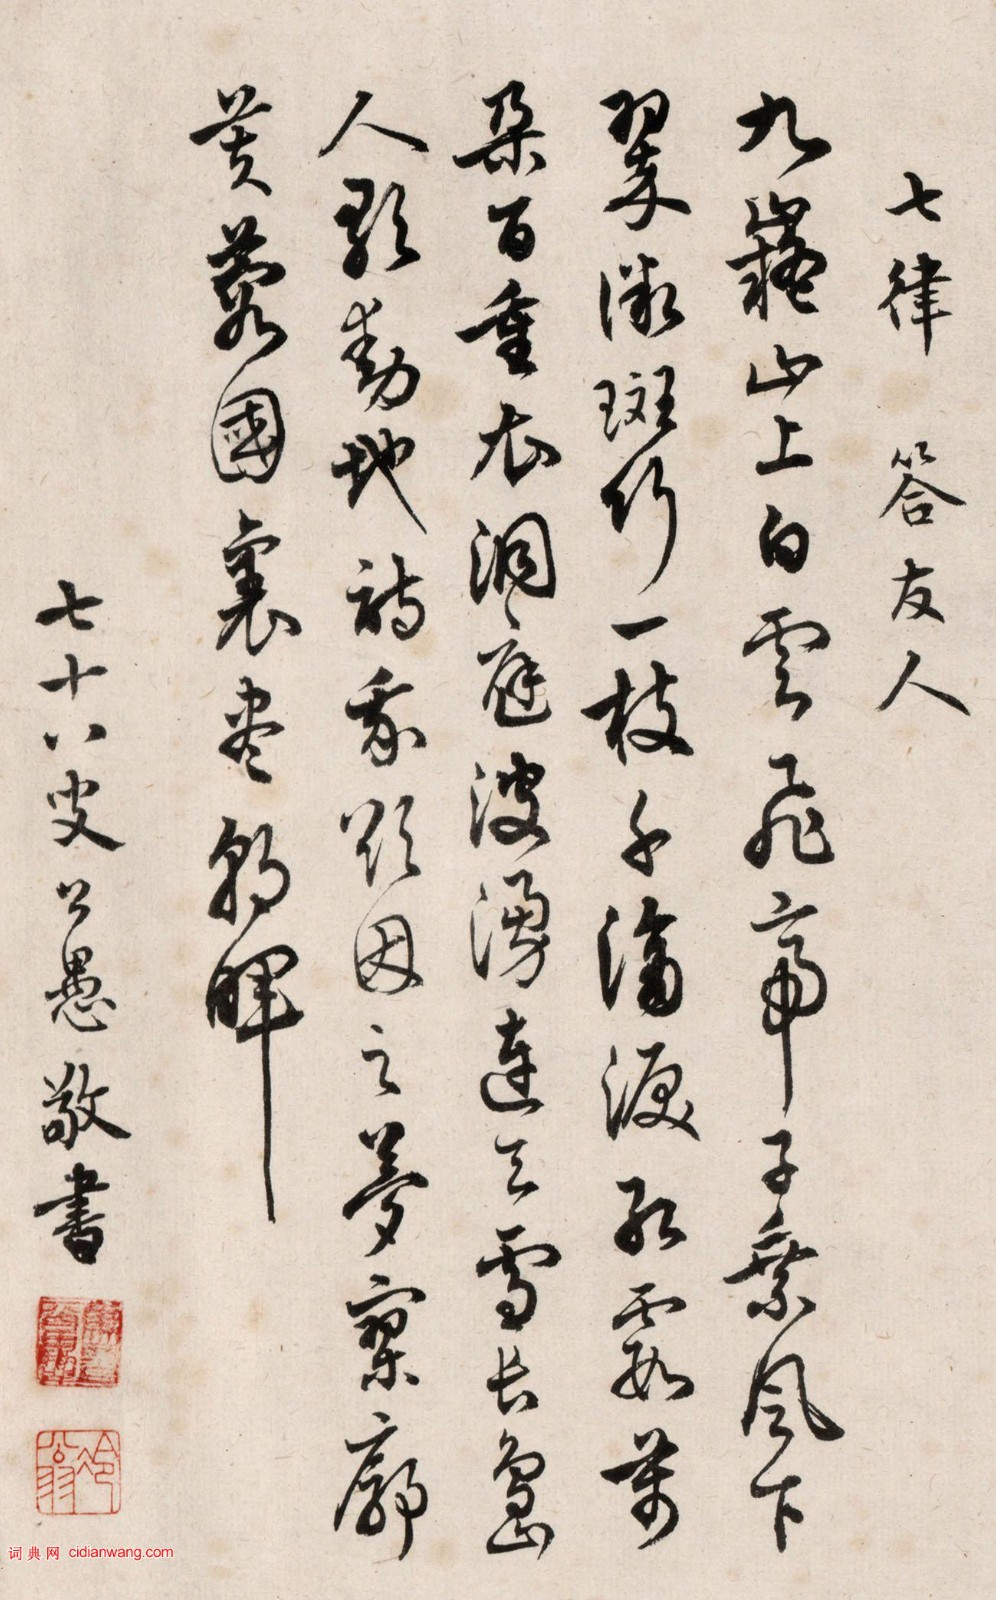 七律 答友人
九嶷山上白雲飛帝子乘風下
翠微斑竹一枝千滴淚紅霞萬
朵百重衣洞庭波湧連天雪長島
人歌動地詩我欲因之夢寥廓
芙蓉國裏盡朝暉
七十八叟公愚敬書
冷公翁
词典网 cidianwang.com